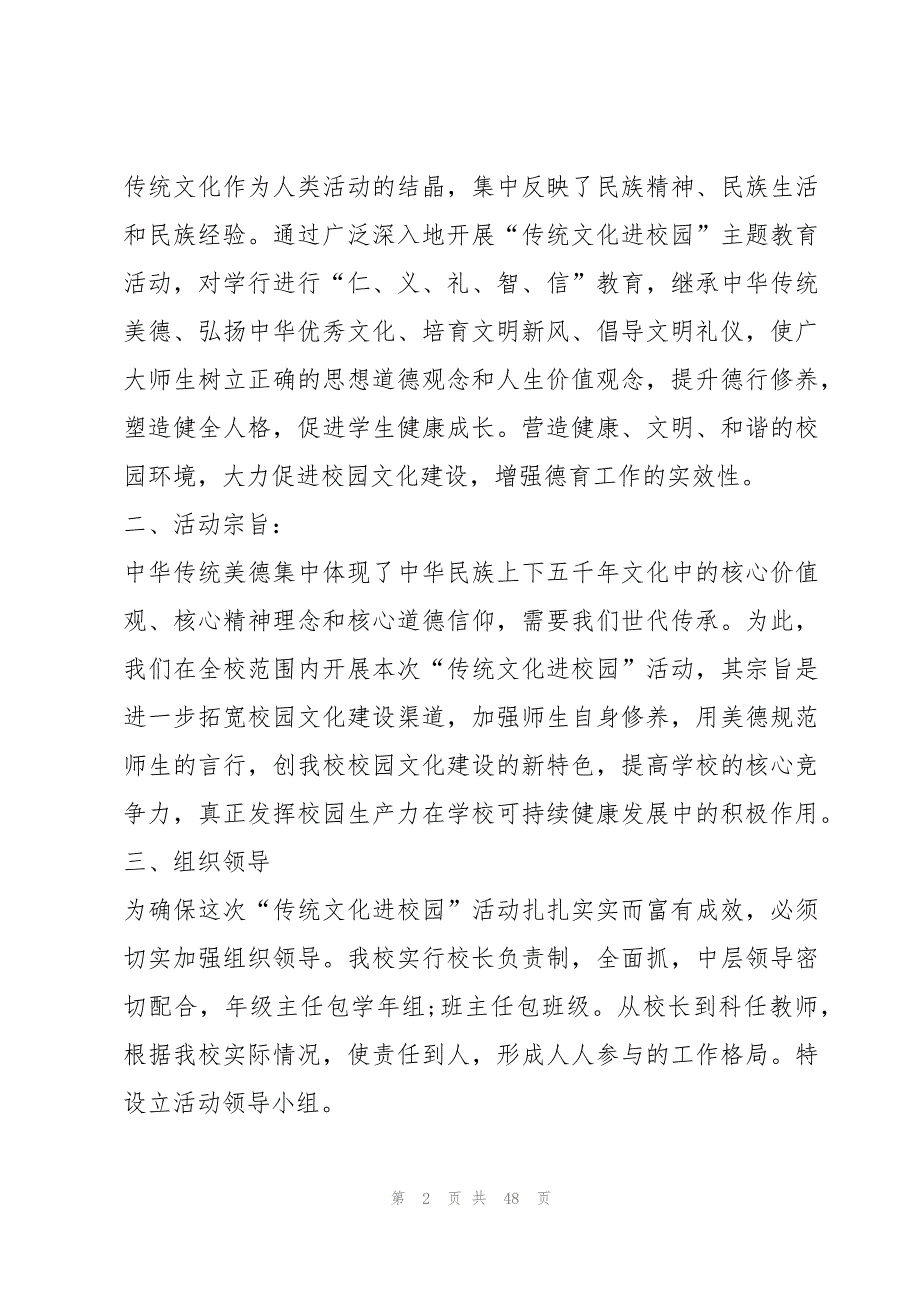 传统文化作为人类活动的结晶，集中反映了民族精神、民族生活
和民族经验。通过广泛深入地开展“传统文化进校园”主题教育
活动，对学行进行“仁、义、礼、智、信”教育，继承中华传统
美德、弘扬中华优秀文化、培育文明新风、倡导文明礼仪，使广
大师生树立正确的思想道德观念和人生价值观念，提升德行修养，
塑造健全人格，促进学生健康成长。营造健康、文明、和谐的校
园环境，大力促进校园文化建设，增强德育工作的实效性。
二、活动宗旨：
中华传统美德集中体现了中华民族上下五千年文化中的核心价值
观、核心精神理念和核心道德信仰，需要我们世代传承。为此，
我们在全校范围内开展本次“传统文化进校园”活动，其宗旨是
进一步拓宽校园文化建设渠道，加强师生自身修养，用美德规范
师生的言行，创我校校园文化建设的新特色，提高学校的核心竞
争力，真正发挥校园生产力在学校可持续健康发展中的积极作用。
三、组织领导
为确保这次“传统文化进校园”活动扎扎实实而富有成效，必须
切实加强组织领导。我校实行校长负责制，全面抓，中层领导密
切配合，年级主任包学年组;班主任包班级。从校长到科任教师，
根据我校实际情况，使责任到人，形成人人参与的工作格局。特
设立活动领导小组。
第 2 页 共 48 页